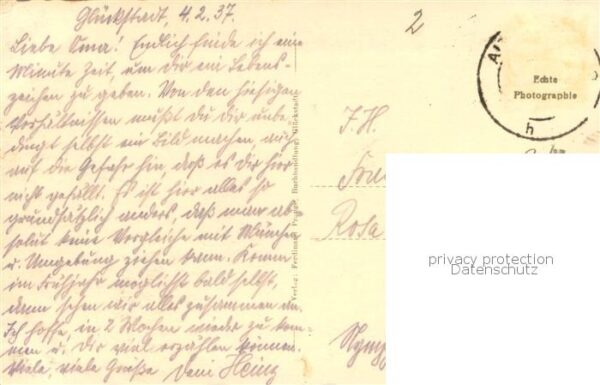 Glückstadt, 4.2.37.
Liebe Oma! Endlich finde ich eine
Minute Zeit, um dir ein Lebens-
zeichen zu geben. Von den hiesigen
Verhältnissen mußt du dir unbe-
dingt selbst ein Bild machen, auch
auf die Gefahr hin, daß es dir hier
nicht gefällt. Es ist hier alles so
grundsätzlich anders, daß man ab-
solut keine Vergleiche mit München
u. Umgebung ziehen kann. Komm
im Frühjahr möglichst bald selbst,
dann sehen wir alles zusammen an.
Ich hoffe, in 2 Wochen wieder zu kom-
men u. Dir viel erzählen können.
Viele, viele Grüße Dein Heinz
Verlag: Ferdinand Buchhandlung, Glückstadt
2
Echte
Photographie
h
F.H.
Frau
Rosa
Nymp
privacy protection
Datenschutz